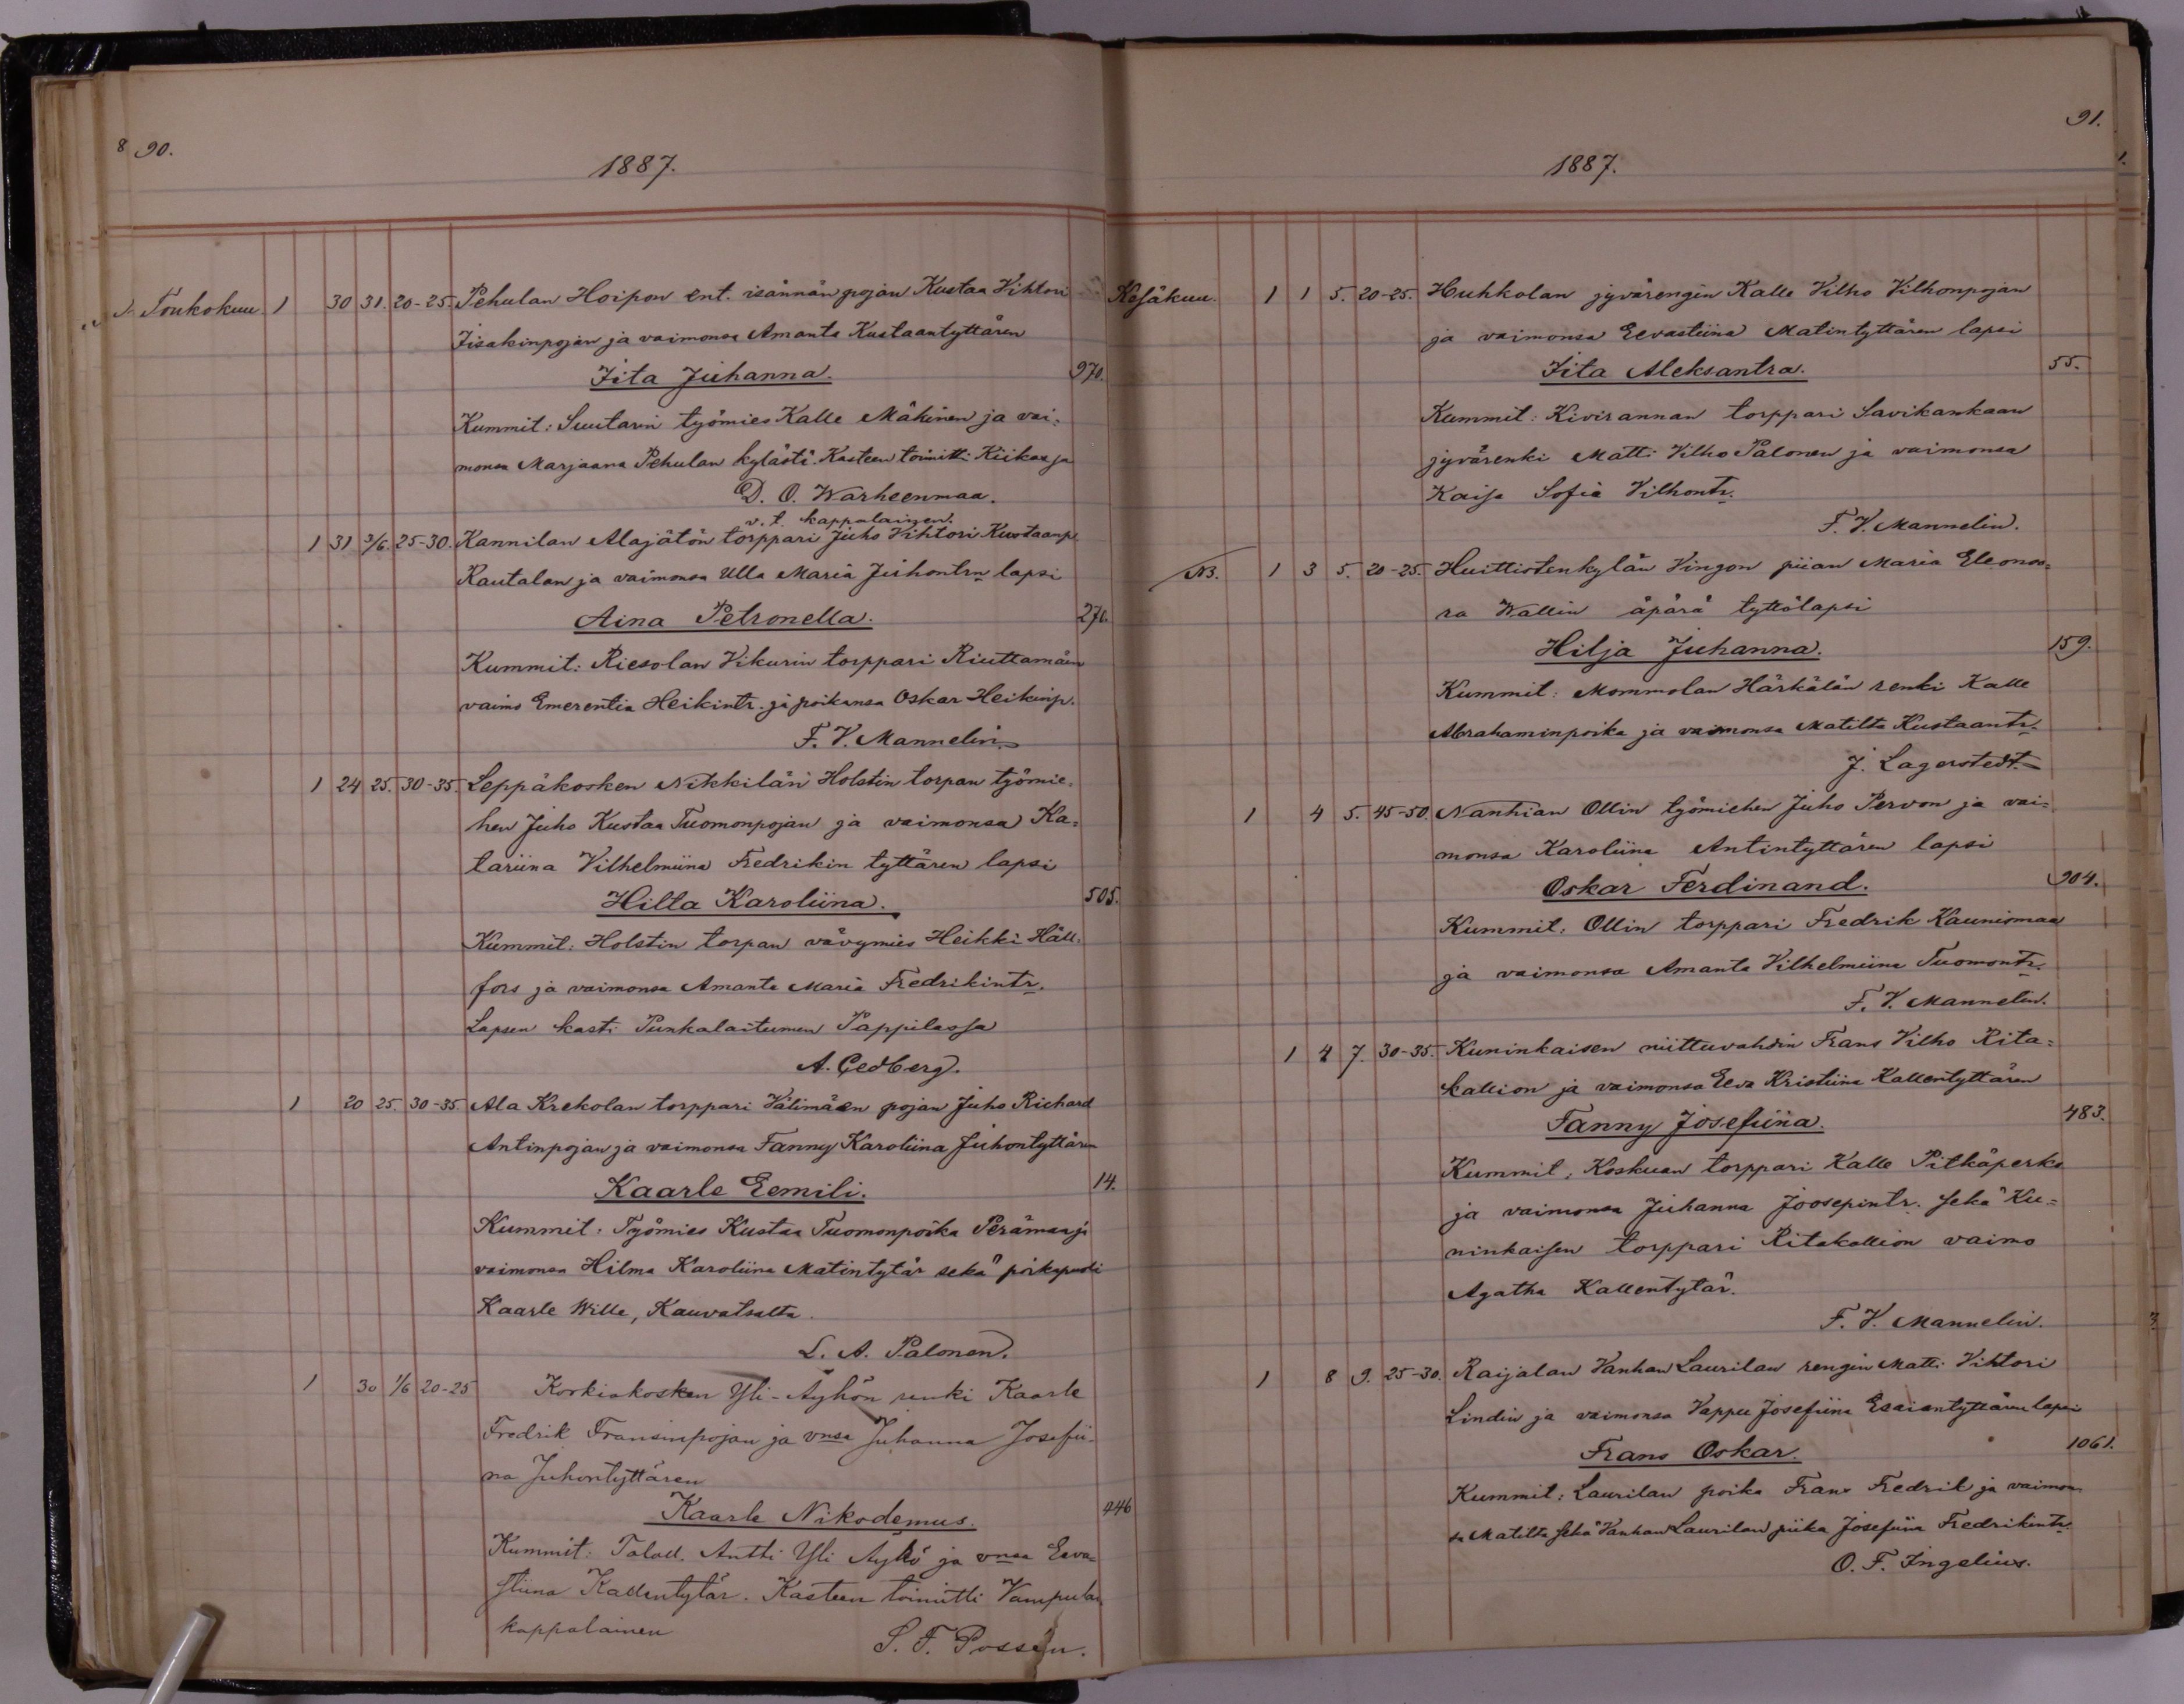 8 90.
1887.
Toukokuu. 1 30 31. 20-25. Pehulan Hoipon ent. isännän pojan Kustaa Vihtori
Iisakinpojan ja vaimonsa Amanta Kustaantyttären
Iita Juhanna. 970.
Kummit: Suutarin työmies Kalle Mäkinen ja vai-
monsa Marjaana Pehulan kylästä. Kasteen toimitti Kiikassa
D. O. Warheenmaa.
v. t. kappalainen.
1 31 3/6. 25-30. Kannilan Alajätön torppari Juho Vihtori Kustaanp.
Rautalan ja vaimonsa Ulla Maria Juhontrn lapsi
Aina Petronella. 270.
Kummit: Riesolan Vikurin torppari Riuttamäen
vaimo Emerentia Heikintr. ja poikansa Oskar Heikinp.
F. V. Mannelin.
1 24 25. 30-35. Leppäkosken Nikkilän Holstin torpan työmie-
hen Juho Kustaa Tuomonpojan ja vaimonsa Ka-
tariina Vilhelmiina Fredrikin tyttären lapsi
Hilta Karoliina. 505.
Kummit: Holstin torpan vävymies Heikki Häll-
fors ja vaimonsa Amanta Maria Fredrikintr.
Lapsen kasti Punkalaitumen Pappilassa
A. Cedberg.
1 20 25. 30-35. Ala Krekolan torppari Välimäen pojan Juho Richard
Antinpojan ja vaimonsa Fanny Karoliina Juhontyttären
Kaarle Eemili. 14.
Kummit: Työmies Kustaa Tuomonpoika Perämaa ja
vaimonsa Hilma Karoliina Matintytär sekä poikapuoli
Kaarle Wille, Kauvatsalta.
L. A. Palonen.
1 30 1/6 20-25 Korkiakosken Yli-Äyhön renki Kaarle
Fredrik Fransinpojan ja vnsa Juhanna Josefii-
na Juhontyttären
Kaarle Nikodemus. 446
Kummit: Taloll. Antti Yli Äyhö ja vnsa Eeva-
stiina Kallentytär. Kasteen toimitti Vampulan
kappalainen
S. F. Possen.
91.
1887.
Kesäkuu. 1 1 5. 20-25. Huhkolan jyvärengin Kalle Vilho Vilhonpojan
ja vaimonsa Eevastiina Matintyttären lapsi
Iita Aleksantra. 55.
Kummit: Kivirannan torppari Savikankaan
jyvärenki Matti Vilho Palonen ja vaimonsa
Kaisa Sofia Vilhontr.
F. V. Mannelin.
NB. 1 3 5. 20-25. Huittistenkylän Vingon piian Maria Eleono-
ra Wallin äpärä tyttölapsi
Hilja Juhanna. 159.
Kummit: Mommolan Härkälän renki Kalle
Abrahaminpoika ja vaimonsa Matilta Kustaantr.
J. Lagerstedt.
1 4 5. 45-50. Nanhian Ollin työmiehen Juho Pervon ja vai-
monsa Karoliina Antintyttären lapsi
Oskar Ferdinand. 904.
Kummit: Ollin torppari Fredrik Kauniomaa
ja vaimonsa Amanta Vilhelmiina Tuomontr.
F. V. Mannelin.
1 4 7. 30-35. Kuninkaisen niittuvahdin Frans Vilho Rita-
kallion ja vaimonsa Eeva Kristiina Kallentyttären
Fanny Josefiina. 483.
Kummit: Koskuan torppari Kalle Pitkäperko
ja vaimonsa Juhanna Joosepintr. sekä Ku-
ninkaisen torppari Ritakallion vaimo
Agatha Kallentytär.
F. V. Mannelin.
1 8 9. 25-30. Raijalan Vanhan Laurilan rengin Matti Vihtori
Lindin ja vaimonsa Vappu Josefiina Esaiantyttären lapsi
Frans Oskar. 1061.
Kummit: Laurilan poika Frans Fredrik ja vaimon-
sa Matilta sekä Vanhan Laurilan piika Josefiina Fredrikintr.
O. F. Ingelius.